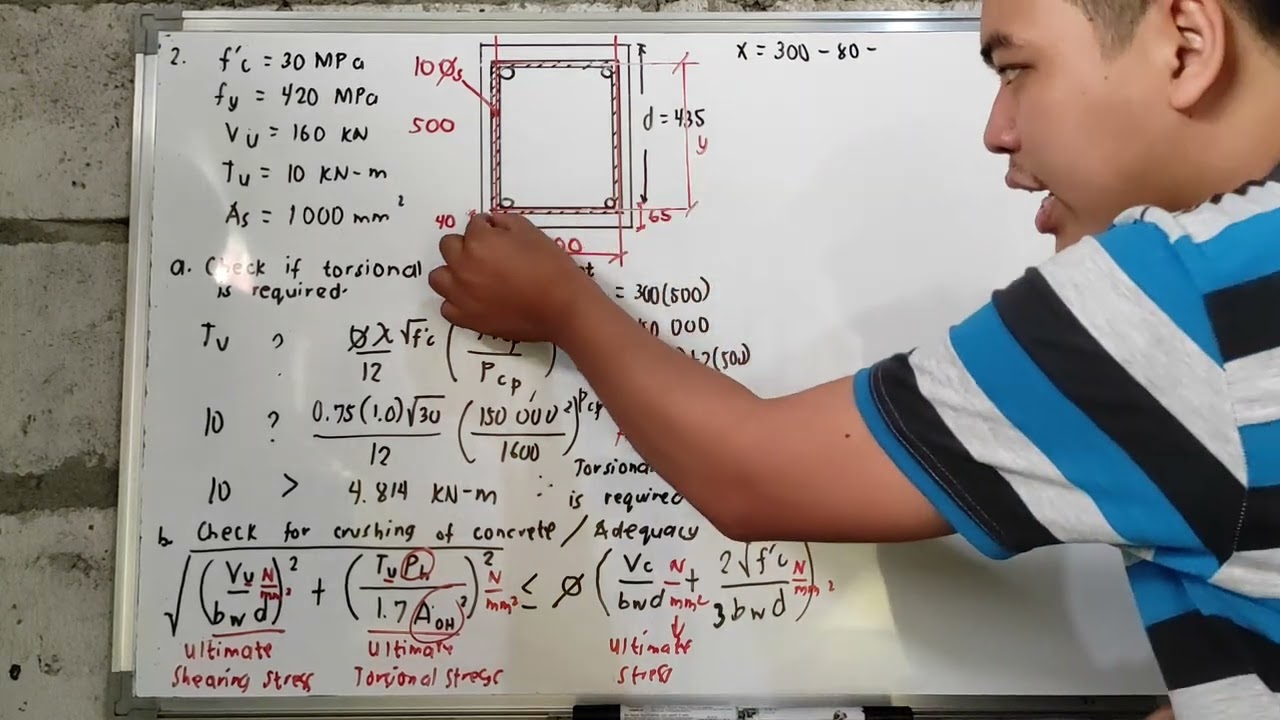 2. f'c = 30 MPa
fy = 420 MPa
Vu = 160 KN
Tu = 10 KN-m
As = 1000 mm²
10 øs
500
40
d = 435
y
65
x = 300 - 80 -
a. Check if torsional
is required.
= 300(500)
Tu ? øλ√f'c / 12 ( / Pcp )
+2(500)
10 ? 0.75(1.0)√30 / 12 (150 000² / 1600) Pcp
10 > 4.814 KN-m ∴ Torsional
is required
b. Check for crushing of concrete / Adequacy
√((Vu / bwd)² N/mm² + (Tu Ph / 1.7 AOH²)² N/mm²) ≤ ø (Vc / bwd N/mm² + 2√f'c / 3 bwd) N/mm²
Ultimate Shearing Stress
Ultimate Torsional Stress
Ultimate Stress